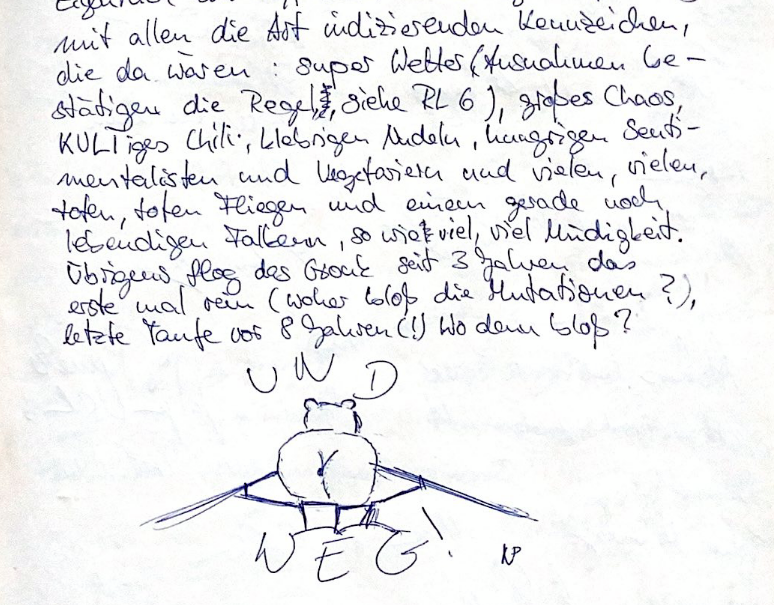 mit allen die Art indizierenden Kennzeichen,
die da wären : super Wetter (Ausnahmen be-
stätigen die Regel, siehe RL 6), großes Chaos,
KULTiges Chili, klebrigen Nudeln, hungrigen Senti-
mentalisten und Vegetariern und vielen, vielen,
toten, toten Fliegen und einem gerade noch
lebendigen Faltern, so wie viel, viel Müdigkeit.
Übrigens flog das seit 3 Jahren das
erste mal rein (woher bloß die Mutationen ?),
letzte Taufe vor 8 Jahren (!) Wo denn bloß ?
UND
WEG!
NP